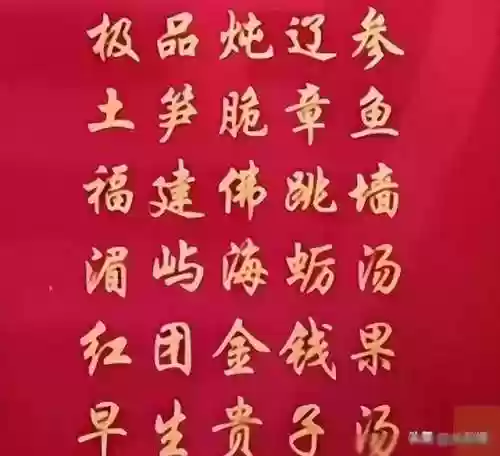 极品炖辽参
土笋脆章鱼
福建佛跳墙
湄屿海蛎汤
红团金钱果
早生贵子汤